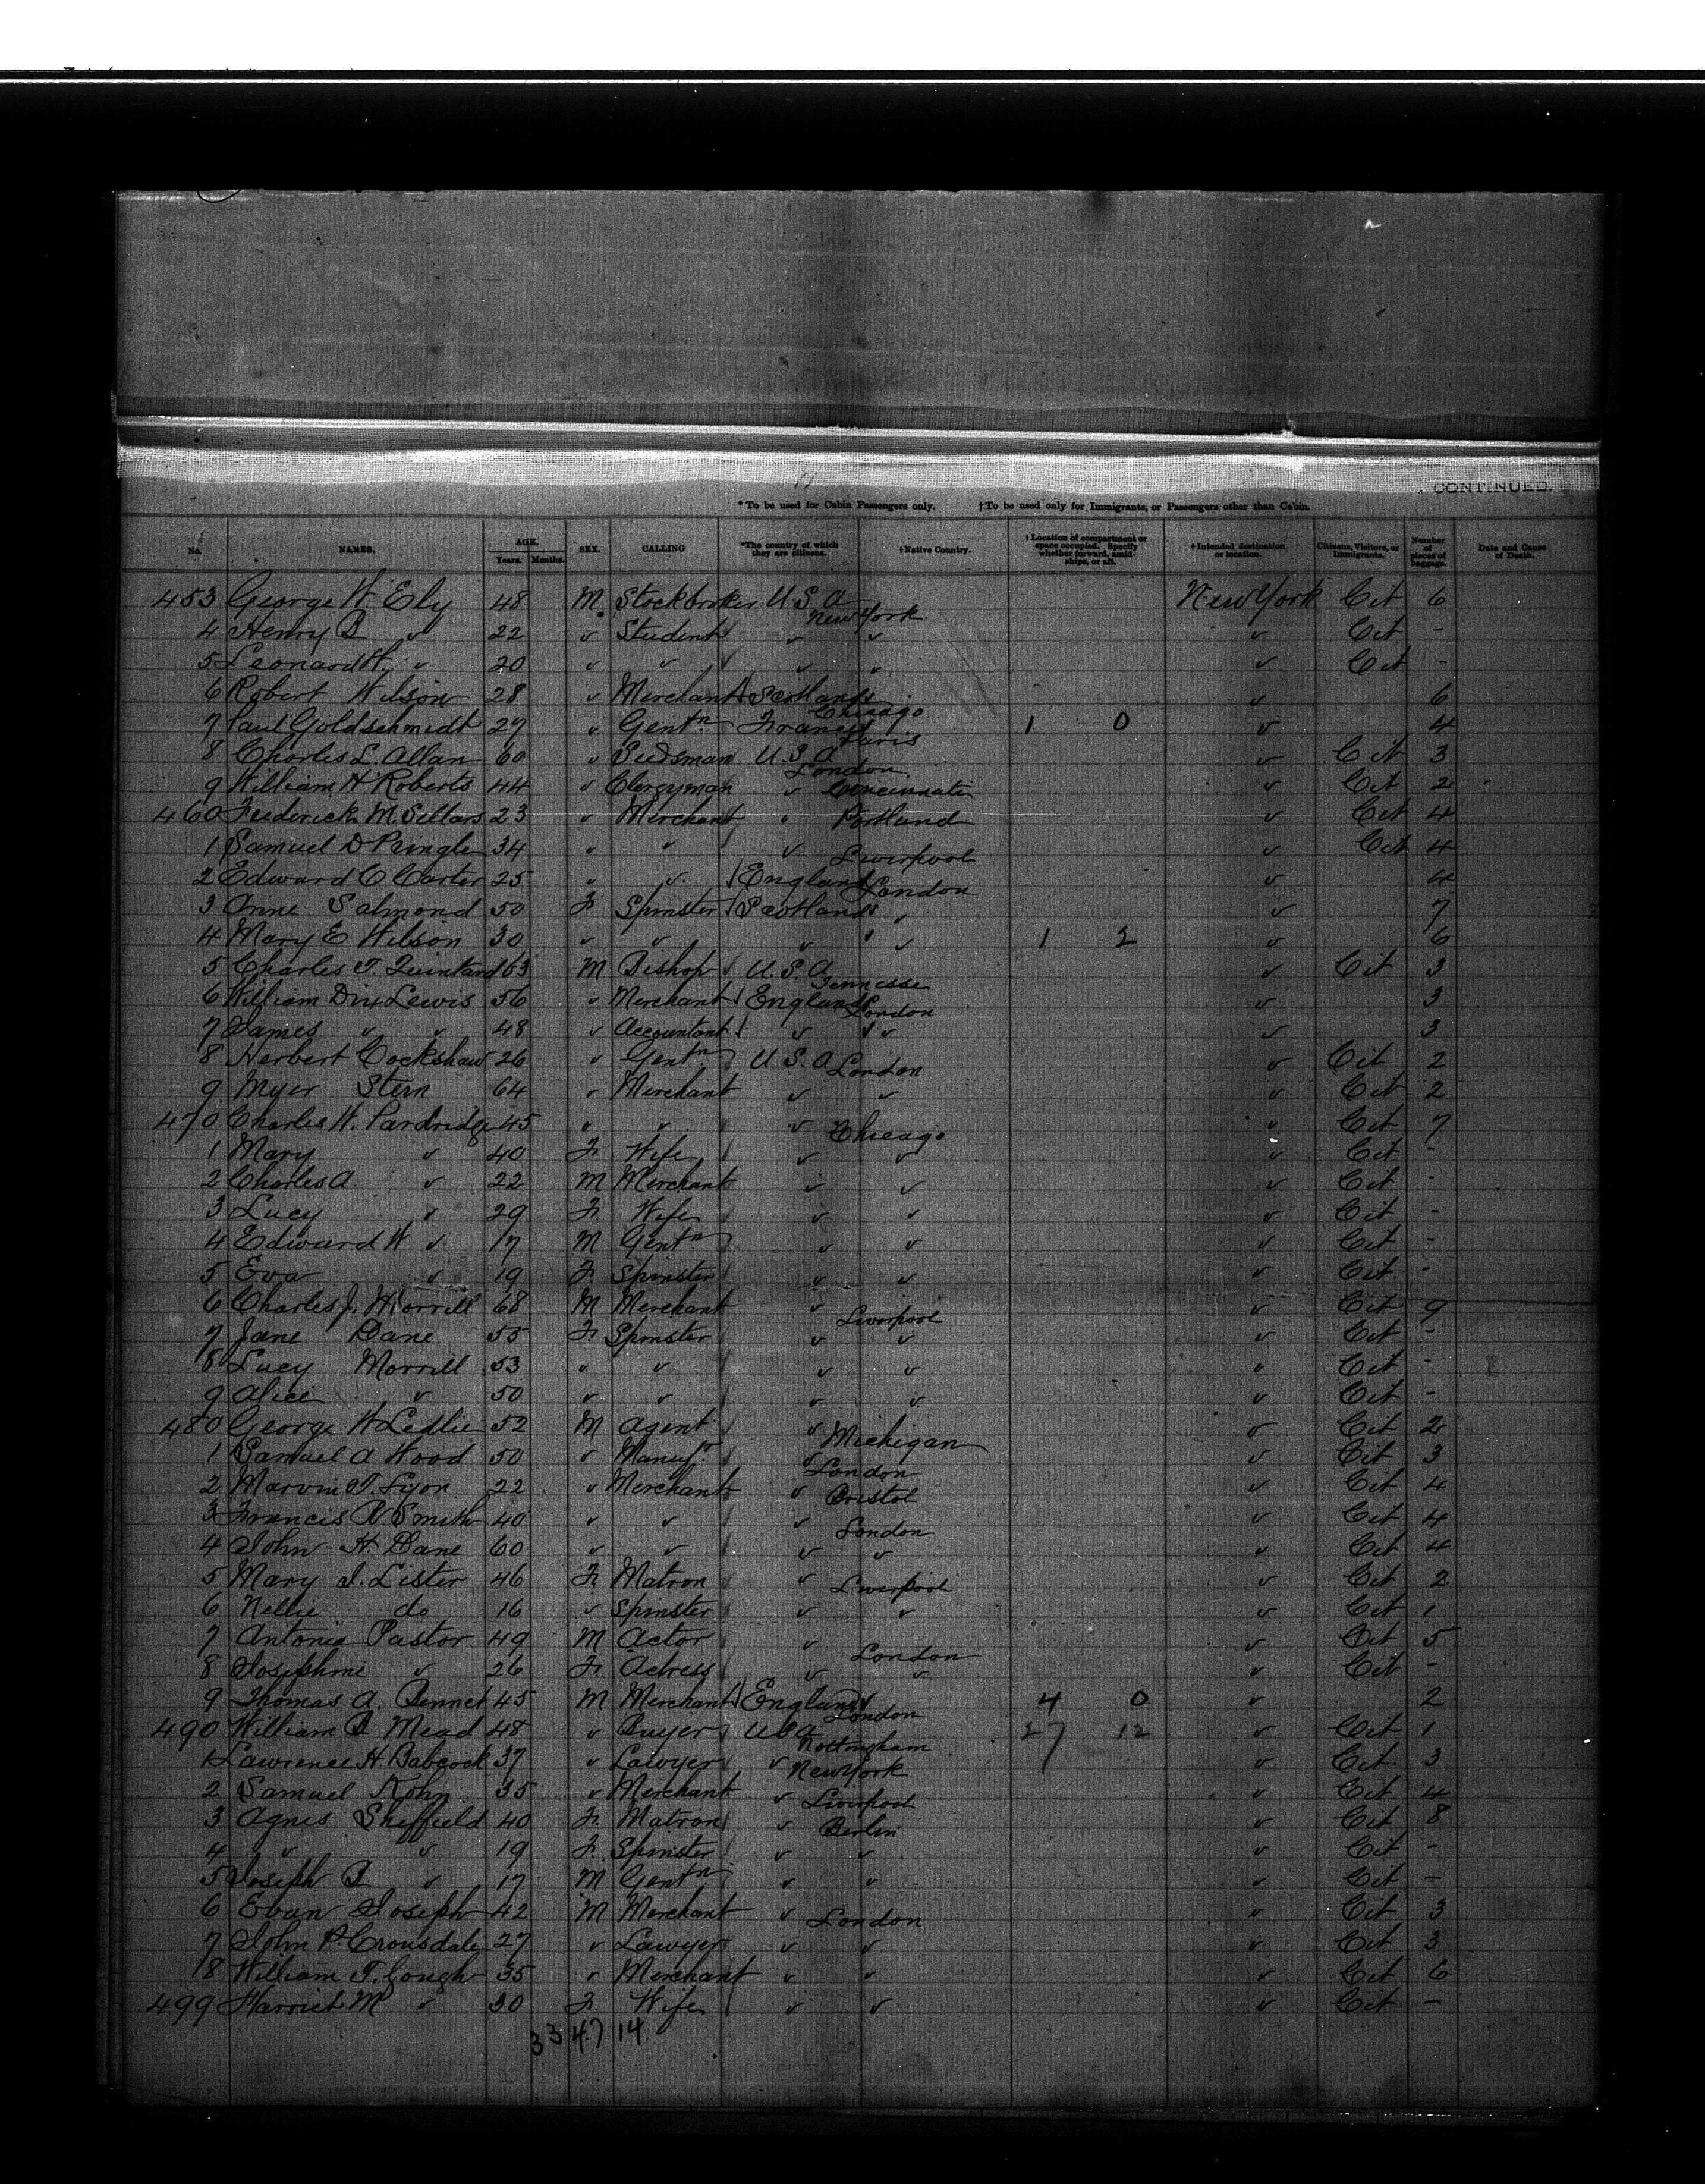 CONTINUED.
*To be used for Cabin Passengers only. †To be used only for Immigrants, or Passengers other than Cabin.
No. NAMES. AGE. Years. Months. SEX. CALLING *The country of which they are citizens. †Native Country. †Location of compartment or space occupied. Specify whether forward, amidships, or aft. †Intended destination or location. Citizens, Visitors, or Immigrants. Number of pieces of baggage. Date and Cause of Death.
453 George W. Ely 48 M. Stockbroker U.S.A New York New York Cit 6
4 Henry B ✓ 22 ✓ Student ✓ ✓ ✓ Cit -
5 Leonard H. ✓ 20 ✓ ✓ ✓ ✓ ✓ Cit -
6 Robert Wilson 28 ✓ Merchant Scotland Chicago ✓ 6
7 Paul Goldschmidt 27 ✓ Gentn France Paris 1 0 ✓ 4
8 Charles L. Allan 60 ✓ Seedsman U.S.A London ✓ Cit 3
9 William H Roberts 44 ✓ Clergyman ✓ Cincinnati ✓ Cit 2
460 Frederick M. Sellars 23 ✓ Merchant ✓ Portland ✓ Cit 4
1 Samuel D Pringle 34 ✓ ✓ ✓ Liverpool ✓ Cit 4
2 Edward C Carter 25 ✓ ✓ England London ✓ 4
3 Anne Salmond 50 F. Spinster Scotland ✓ ✓ 7
4 Mary E Wilson 30 ✓ ✓ ✓ ✓ 1 2 ✓ 6
5 Charles T. Quintard 63 M Bishop U.S.A Tennesse ✓ Cit 3
6 William Dix Lewis 56 ✓ Merchant England London ✓ 3
7 James ✓ ✓ 48 ✓ Accountant ✓ ✓ ✓ 3
8 Herbert Cockshaw 26 ✓ Gentn U.S.A London ✓ Cit 2
9 Myer Stern 64 ✓ Merchant ✓ ✓ ✓ Cit 2
470 Charles W. Pardridge 45 ✓ ✓ ✓ Chicago ✓ Cit 7
1 Mary ✓ 40 F. Wife ✓ ✓ ✓ Cit -
2 Charles A. ✓ 22 M Merchant ✓ ✓ ✓ Cit -
3 Lucy ✓ 29 F. Wife ✓ ✓ ✓ Cit -
4 Edward W ✓ 17 M Gentn ✓ ✓ ✓ Cit -
5 Eva ✓ 19 F. Spinster ✓ ✓ ✓ Cit -
6 Charles J. Morrill 68 M Merchant ✓ Liverpool ✓ Cit 9
7 Jane Dane 55 F. Spinster ✓ ✓ ✓ Cit -
8 Lucy Morrill 53 ✓ ✓ ✓ ✓ ✓ Cit -
9 Alice ✓ 50 ✓ ✓ ✓ ✓ ✓ Cit -
480 George H Leslie 52 M Agent ✓ Michigan ✓ Cit 2
1 Samuel A Wood 50 ✓ Manufr ✓ London ✓ Cit 3
2 Marvin T. Lyon 22 ✓ Merchant ✓ Bristol ✓ Cit 4
3 Francis R Smith 40 ✓ ✓ ✓ London ✓ Cit 4
4 John H. Dane 60 ✓ ✓ ✓ ✓ ✓ Cit 4
5 Mary J. Lister 46 F. Matron ✓ Liverpool ✓ Cit 2
6 Nellie do 16 ✓ Spinster ✓ ✓ ✓ Cit 1
7 Antonia Pastor 49 M Actor ✓ London ✓ Cit 5
8 Josephine ✓ 26 F. Actress ✓ ✓ ✓ Cit -
9 Thomas A. Bennet 45 M Merchant England London 4 0 ✓ 2
490 William B Mead 48 ✓ Buyer USA Nottingham 27 12 ✓ Cit 1
1 Lawrence H. Babcock 37 ✓ Lawyer ✓ New York ✓ Cit 3
2 Samuel Kohn 35 ✓ Merchant ✓ Liverpool ✓ Cit 4
3 Agnes Sheffield 40 F. Matron ✓ Berlin ✓ Cit 8
4 ✓ ✓ 19 F. Spinster ✓ ✓ ✓ Cit -
5 Joseph B ✓ 17 M Gentn ✓ ✓ ✓ Cit -
6 Evan Joseph 42 M Merchant ✓ London ✓ Cit 3
7 John P. Cronsdale 27 ✓ Lawyer ✓ ✓ ✓ Cit 3
8 William T. Gough 35 ✓ Merchant ✓ ✓ ✓ Cit 6
499 Harriet M ✓ 30 F. Wife ✓ ✓ ✓ Cit -
33 47 14